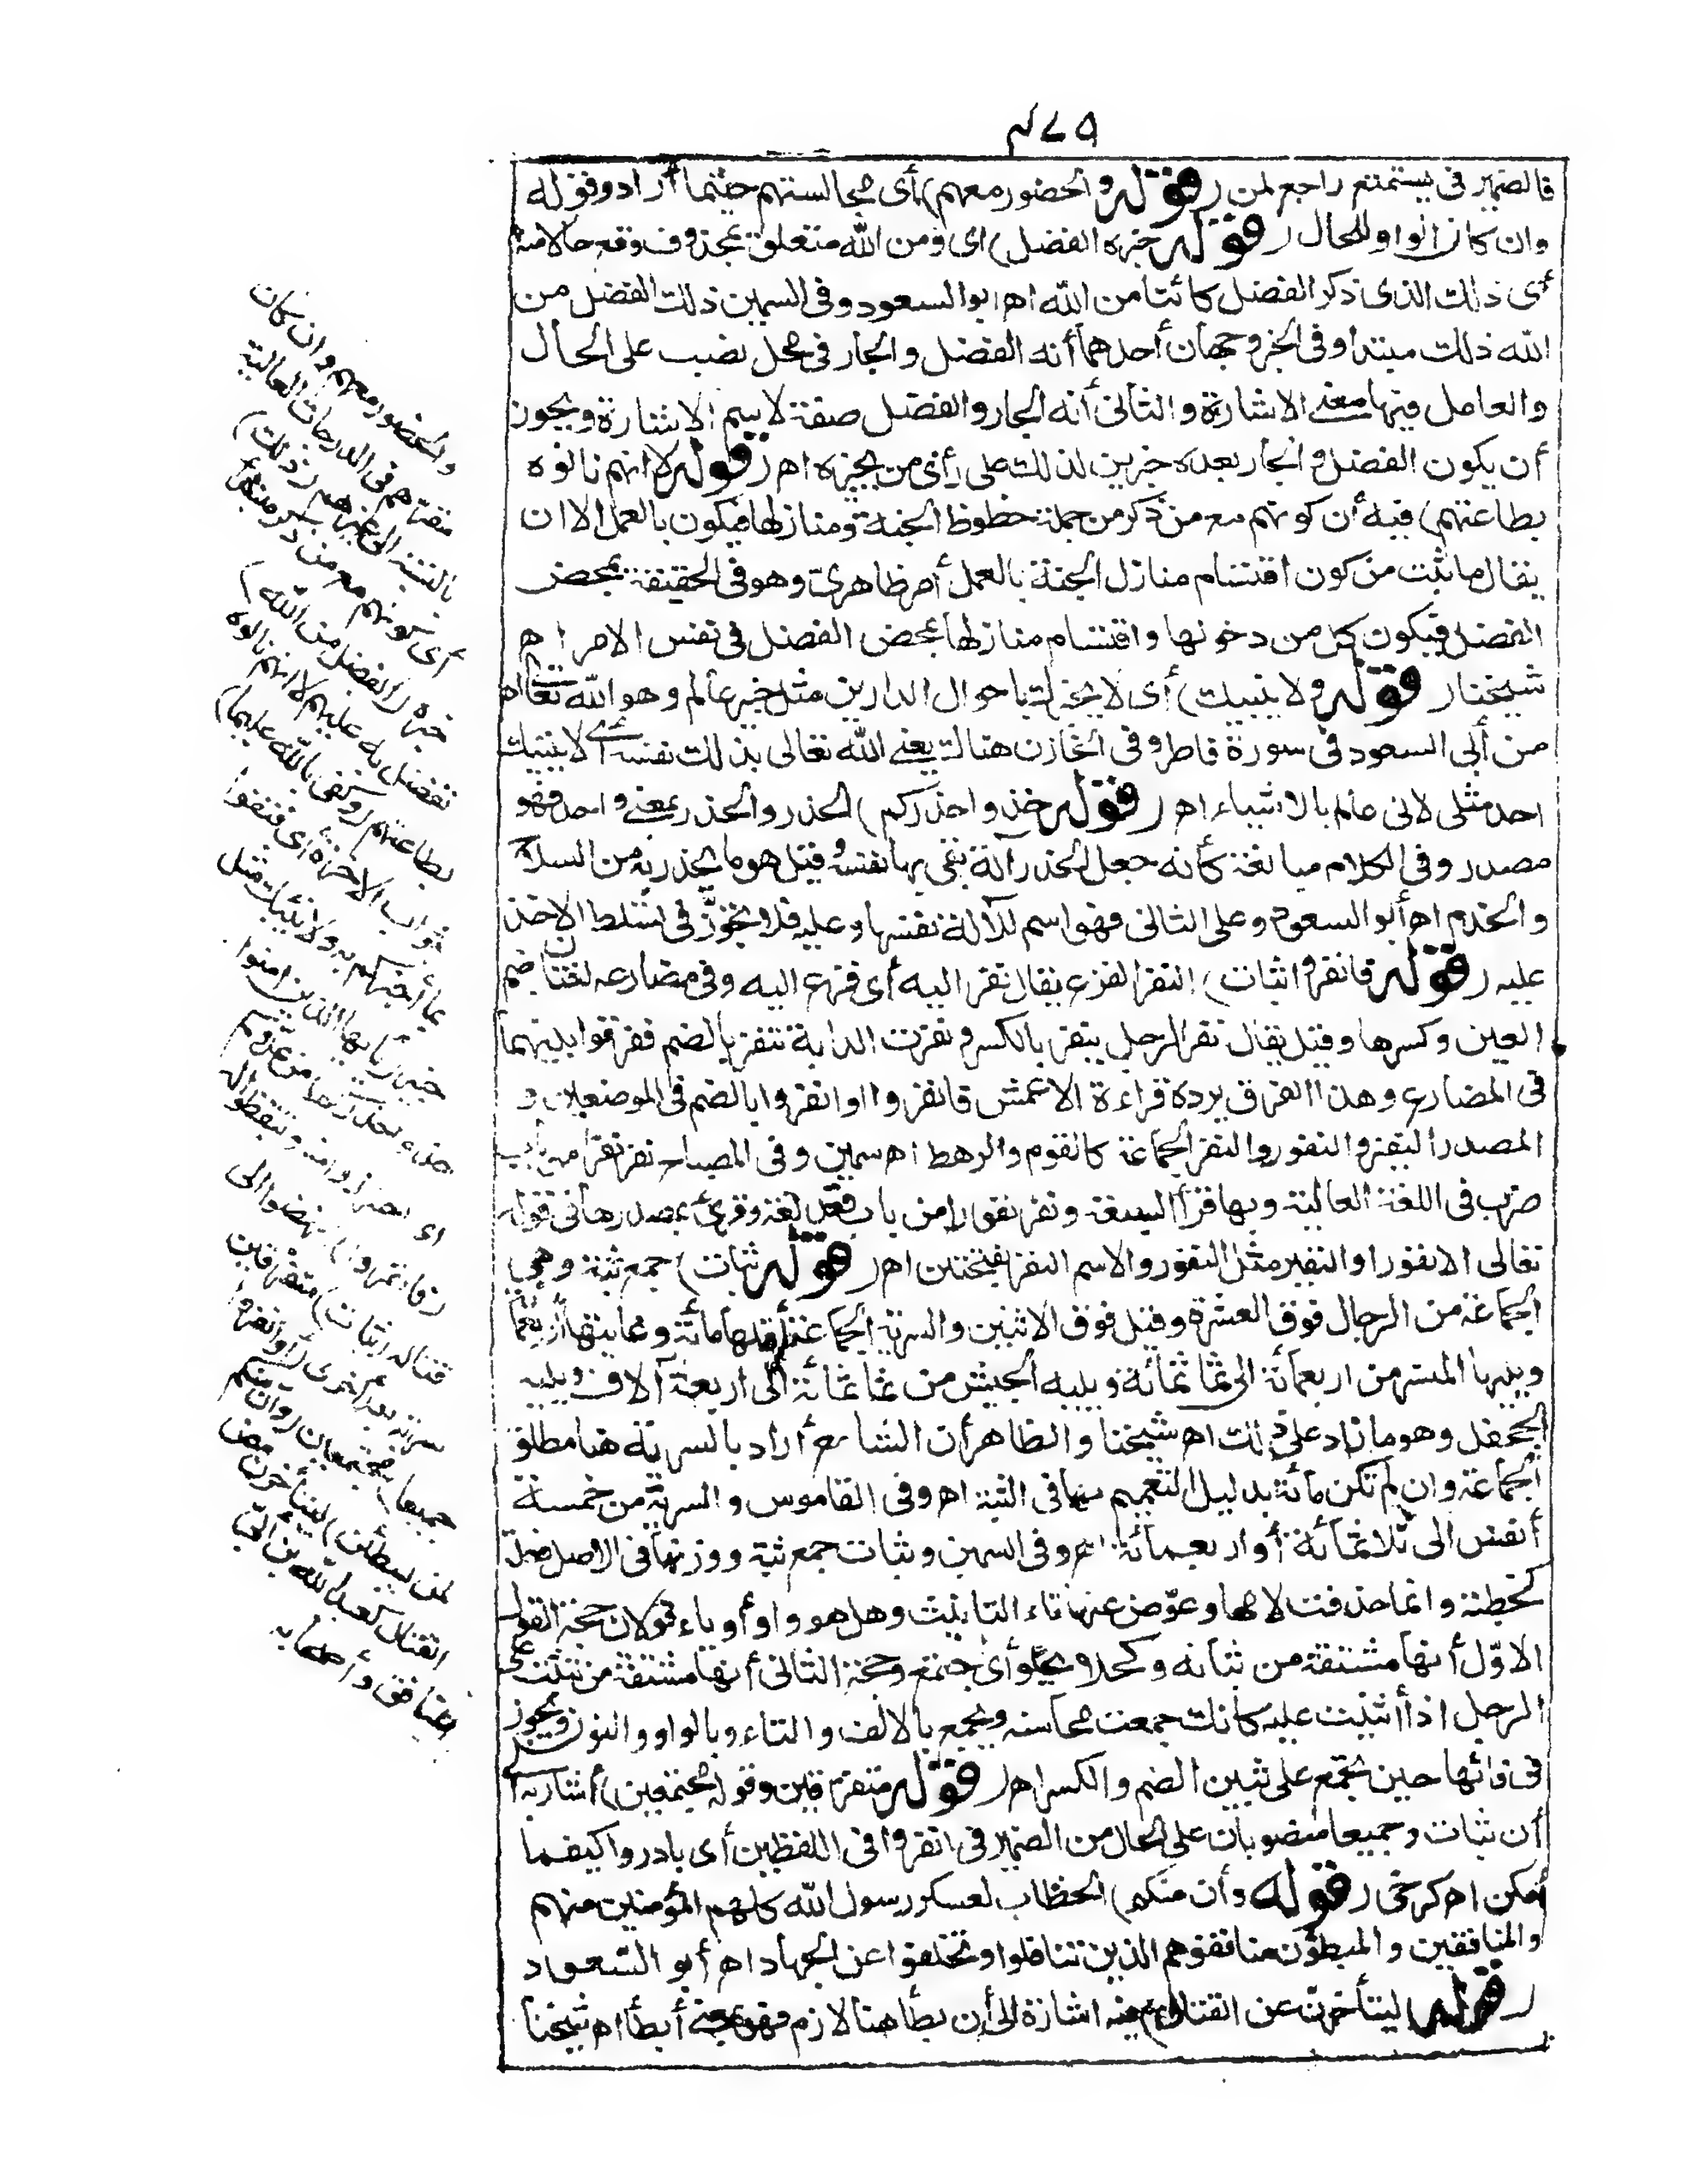 ٤٧٥
فالضمير فى يستمتع راجع لمن (قوله والحضور معهم) أى مجالستهم حيثما أرادوا وقوله
وان كان الواو للحال (قوله خبره الفضل) اى ومن الله متعلق بمحذوف وقع حالا منه
أى ذلك الذى ذكر الفضل كائنا من الله اهـ ابو السعود وفى السمين ذلك الفضل من
الله ذلك مبتدا وفى الخبر وجهان أحدهما أنه الفضل والجار فى محل نصب على الحال
والعامل فيها معنى الاشارة والثانى أنه الجار والفضل صفة لاسم الاشارة ويجوز
أن يكون الفضل والجار بعده خبرين لذلك على رأى من يجيزه اهـ (قوله لا انهم نالوه
بطاعتهم) فيه أن كونهم مع من ذكر من جملة حظوظ الجنة ومنازلها فيكون بالعمل الا ان
يقال ما يثبت من كون اقتسام منازل الجنة بالعمل أمر ظاهرى وهو فى الحقيقة بمحض
الفضل فيكون كل من دخولها واقتسام منازلها بمحض الفضل فى نفس الامر اهـ
شيخنا (قوله ولا ينبيك) أى لا يخبرك باحوال الدارين مثل خبير عالم وهو الله تعالى اهـ
من أبى السعود فى سورة فاطر وفى الخازن هناك يعنى الله تعالى بذلك نفسه أى لا ينبيك
احد مثلى لانى عالم بالاشياء اهـ (قوله خذوا حذركم) الحذر والحذر بمعنى واحد فهو
مصدر وفى الكلام مبالغة كأنه جعل الحذر آلة يقى بها نفسه وقيل هو ما يحذر به من السلاح
والحزم اهـ أبو السعود وعلى الثانى فهو اسم للآلة نفسها وعليه فلا تجوّز فى تسلط الاخذ
عليه (قوله فانفروا ثبات) النفر الفزع يقال نفر اليه أى فزع اليه وفى مضارعه لغتان ضم
العين وكسرها وقيل يقال نفر الرجل ينفر بالكسر ونفرت الدابة تنفر بالضم ففرقوا بينهما
فى المضارع وهذا الفرق يرده قراءة الاعمش فانفروا او انفروا بالضم فى الموضعين و
المصدر النفير والنفور والنفر الجماعة كالقوم والرهط اهـ سمين وفى المصباح نفر نفرا من باب
ضرب فى اللغة العالية وبها قرأ السبعة ونفر نفورا من باب قعد لغة وقرئ بمصدرها فى قوله
تعالى الا نفورا والنفير مثل النفور والاسم النفر بفتحتين اهـ (قوله ثبات) جمع ثبة وهى
الجماعة من الرجال فوق العشرة وقيل فوق الاثنين والسرية الجماعة أقلها مائة وغايتها أربعمائة
ويليها المنسر من اربعمائة الى ثمانمائة ويليه الجيش من ثمانمائة الى اربعة آلاف ويليه
الجحفل وهو ما زاد على ذلك اهـ شيخنا والظاهر أن الشارح أراد بالسرية هنا مطلق
الجماعة وان لم تكن مائة بدليل التعميم بها فى الثبة اهـ وفى القاموس والسرية من خمسة
أنفس الى ثلاثمائة أو اربعمائة اهـ وفى السمين وثبات جمع ثبة ووزنها فى الاصل فعلة
كحطمة وانما حذفت لامها وعوّض عنها تاء التأنيث وهل هو واو أو ياء قولان حجة القول
الاوّل أنها مشتقة من ثبا يثبو كحلا يحلو أى اجتمع وحجة الثانى أنها مشتقة من ثبيت على
الرجل اذا أثنيت عليه كأنك جمعت محاسنه ويجمع بالالف والتاء وبالواو والنون ويجوز
فى فائها حين تجمع على ثبين الضم والكسر اهـ (قوله متفرقين وقوله مجتمعين) أشار به الى
أن ثبات وجميعا منصوبان على الحال من الضمير فى انفروا فى اللفظين أى بادروا كيفما
أمكن اهـ كرخى (قوله وأن منكم) الخطاب لعسكر رسول الله كلهم المؤمنين منهم
والمنافقين والمبطؤن منافقوهم الذين تثاقلوا وتخلفوا عن الجهاد اهـ أبو السعود
(قوله ليتأخرنّ عن القتال) فيه اشارة الى أن بطأ هنا لازم فهو بمعنى أبطأ اهـ شيخنا
والحضور معهم وان كان
مقرهم فى الدرجات العالية
بالنسبة الى غيرهم (ذلك)
أى كونهم مع من ذكر مبتدأ
خبره (الفضل من الله)
تفضل به عليهم لا انهم نالوه
بطاعتهم (وكفى بالله عليما)
بثواب الآخرة أى فثقوا
بما أخبركم به ولا ينبئك مثل
خبير (يأيها الذين امنوا
خذوا حذركم) من عدوكم
اى احترزوا منه وتيقظوا له
(فانفروا) انهضوا الى
قتاله (ثبات) متفرقين
سرية بعد أخرى (أو انفروا
جميعا) مجتمعين (وأن منكم
لمن ليبطئن) ليتأخرن عن
القتال كعبد الله بن أبىّ
المنافق وأصحابه